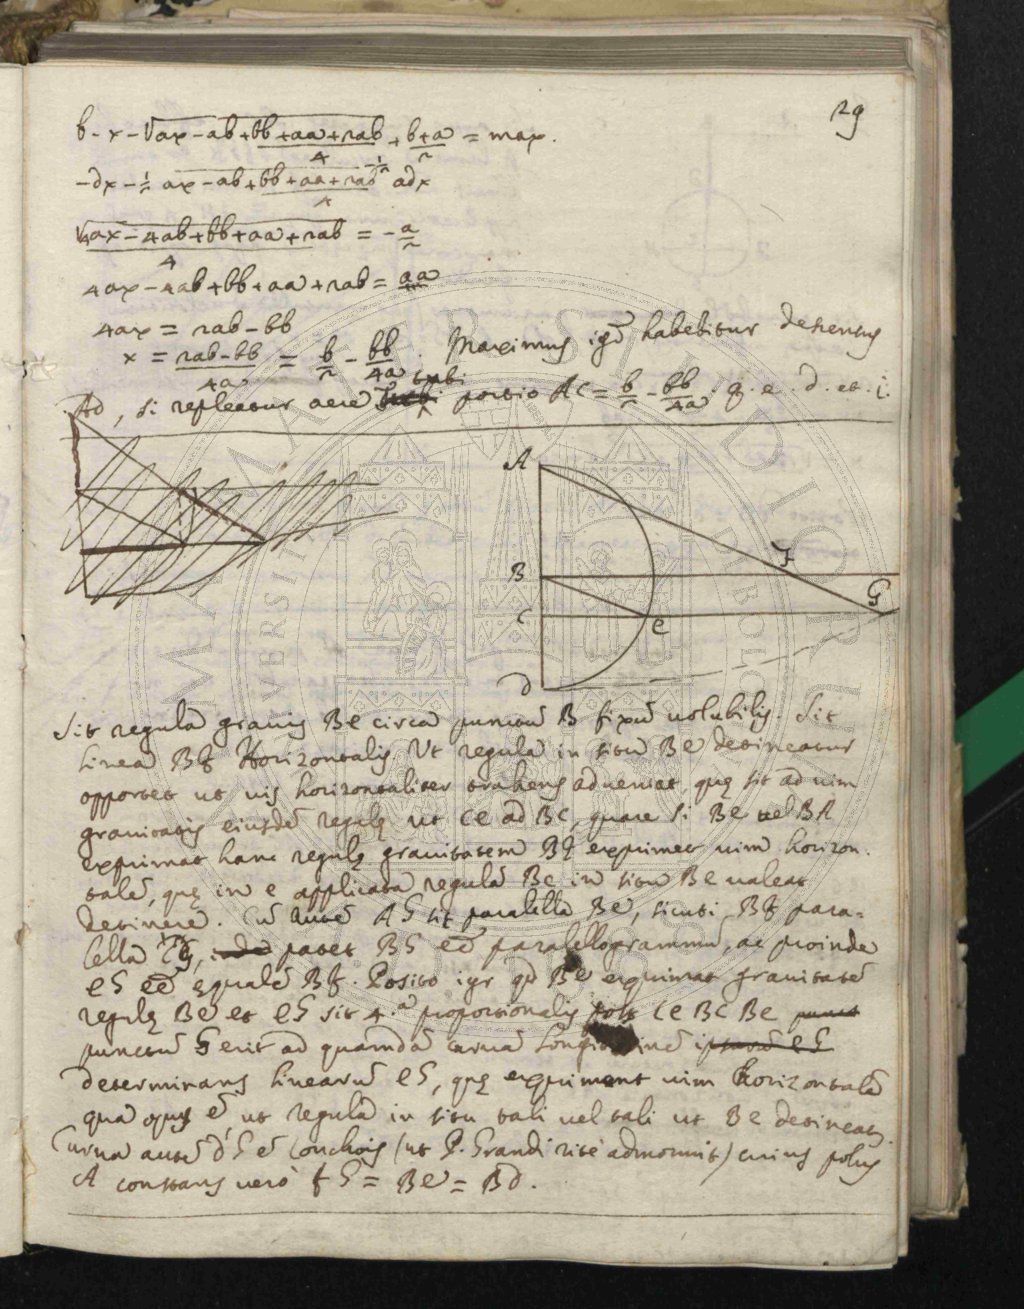 29
b - x - √ax - ab + bb + aa + 2ab / 4 + b+a / 2 = max.
-dx - 1/2 ax - ab + bb + aa + 2ab / 4 -1/2 adx
√4ax - 4ab + bb + aa + 2ab / 4 = - a/2
4ax - 4ab + bb + aa + 2ab = aa
4ax = 2ab - bb
x = 2ab - bb / 4a = b/2 - bb/4a. Maximus igr̃ habebitur descensus
AD, si repleatur aere tubi portio AC = b/2 - bb/4a. q. e. d. et i.
A
B
F
C
e
G
D
Sit regula gravis Be circa punctũ B fixũ volubilis. Sit
linea Bf Horizontalis. Ut regula in situ Be detineatur
oportet ut vis horizontaliter trahens adveniat, quę sit ad vim
gravitatis eiusdẽ regulę ut Ce ad BC, quare si Be vel BA
exprimat hanc regulę gravitatem Bf exprimet vim horizon.
talẽ, quę in e applicata regulã Be in situ Be valeat
detinere. Cũ autẽ AG sit parallela Be, sicuti Bf para=
lella CG, patet BG eẽ parallelogrammũ, ac proinde
eG eẽ ęqualẽ Bf. Posito igr qd Be exprimat gravitatẽ
regulę Be et eG sit 4.a proportionalis post Ce BC Be
punctũ G erit ad quamdã curvã
determinans linearũ eG, quę exprimunt vim horizontalẽ
quã opus ẽ, ut regula in situ tali vel tali ut Be detineatr.
Curva autẽ dG ẽ Conchois (ut P. Grandi rite admonuit) cuius polus
A constans vero fG = Be = BD.